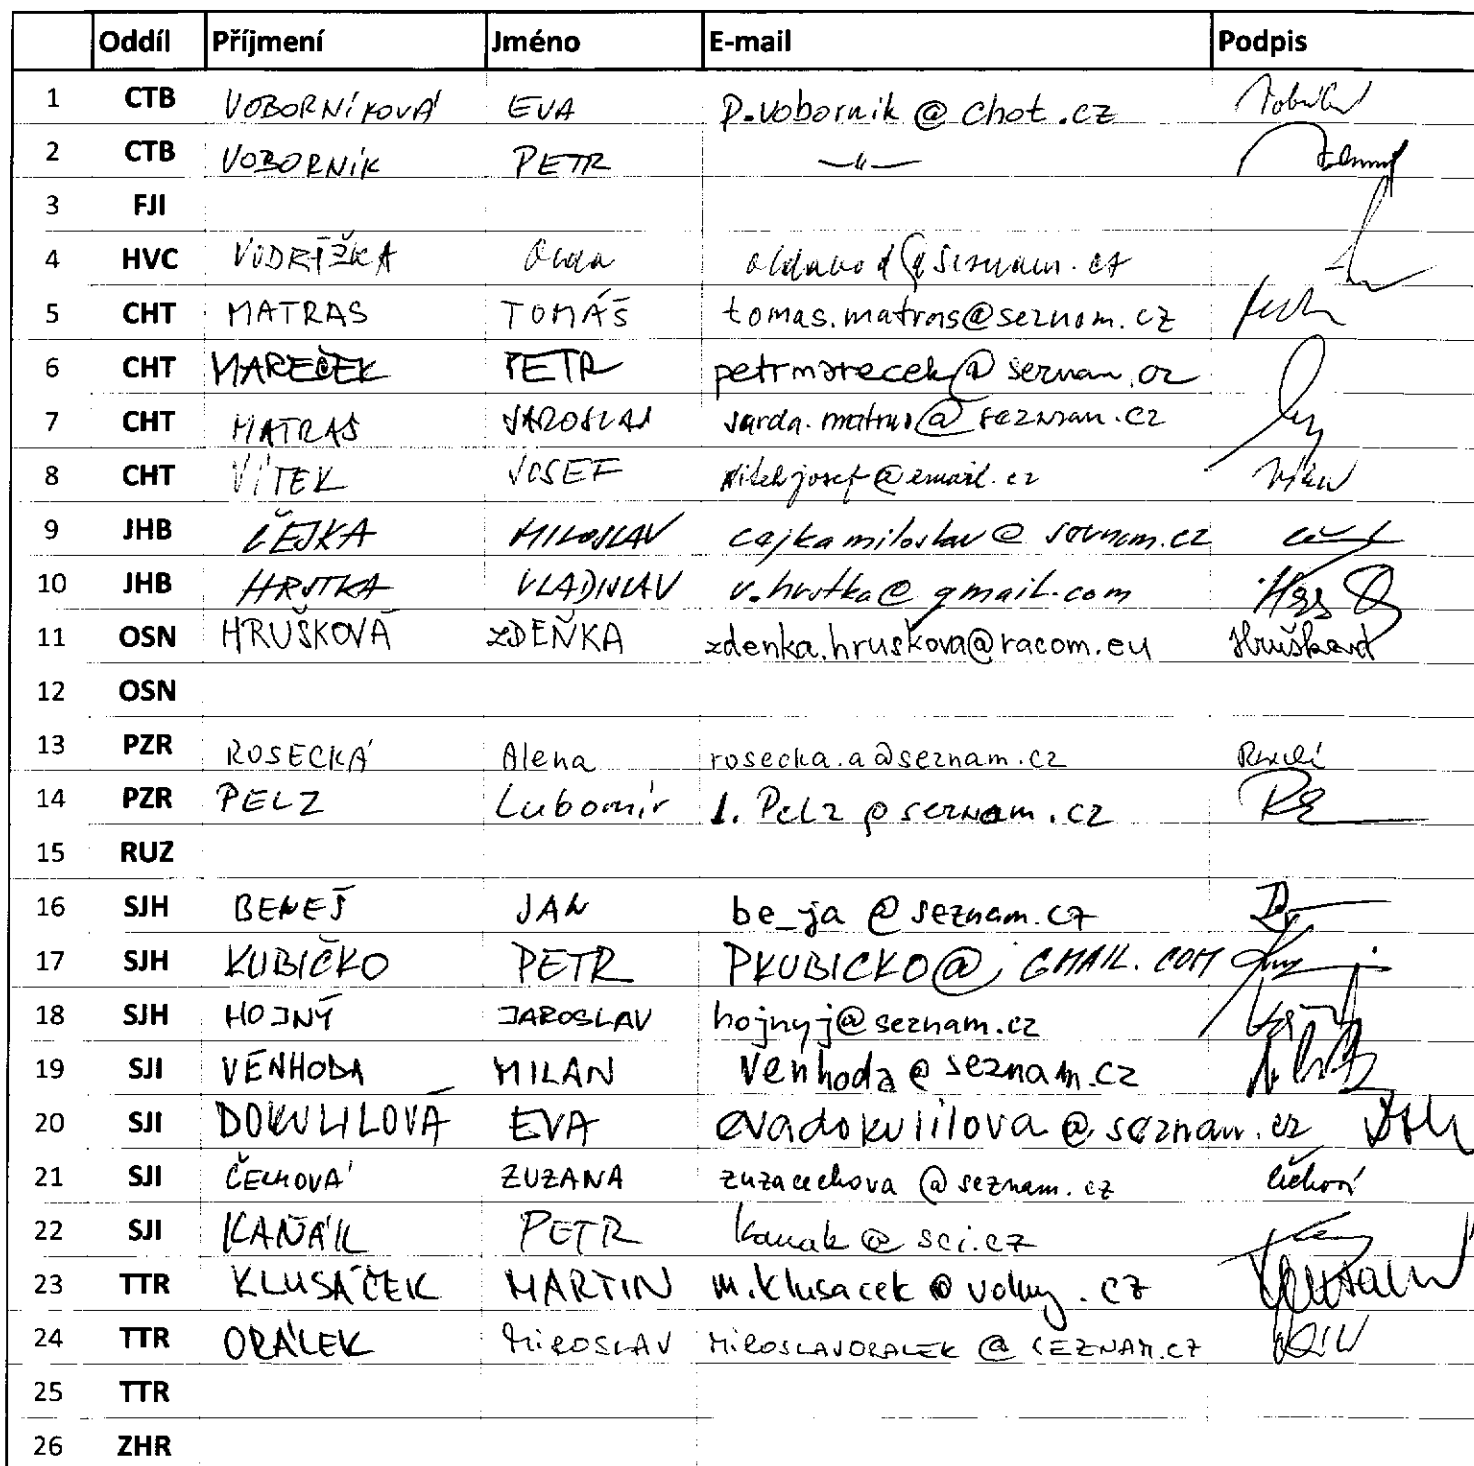 Oddíl Příjmení Jméno E-mail Podpis
1 CTB VOBORNÍKOVÁ EVA p.vobornik@chot.cz
2 CTB VOBORNÍK PETR —〃—
3 FJI
4 HVC VODRÁŽKA Olda
5 CHT MATRAS TOMÁŠ tomas.matras@seznam.cz
6 CHT MAREČEK PETR petrmarecek@seznam.cz
7 CHT MATRAS JAROSLAV jarda.matras@seznam.cz
8 CHT VÍTEK JOSEF vitekjosef@email.cz
9 JHB ČEJKA MILOSLAV
10 JHB HRSTKA VLADISLAV v.hrstka@gmail.com
11 OSN HRUŠKOVÁ ZDEŇKA zdenka.hruskova@racom.eu Hrušková
12 OSN
13 PZR ROSECKÁ Alena rosecka.a@seznam.cz
14 PZR PELZ Lubomír l.Pelz@seznam.cz
15 RUZ
16 SJH BENEŠ JAN be_ja@seznam.cz
17 SJH KUBIČKO PETR PKUBICKO@GMAIL.COM
18 SJH HOJNÝ JAROSLAV hojnyj@seznam.cz
19 SJI VENHODA MILAN venhoda@seznam.cz
20 SJI DOKULILOVÁ EVA evadokulilova@seznam.cz
21 SJI ČECHOVÁ ZUZANA zuzacechova@seznam.cz Čechová
22 SJI KAŇÁK PETR kanak@sci.cz
23 TTR KLUSÁČEK MARTIN m.klusacek@volny.cz
24 TTR ORÁLEK MIROSLAV MIROSLAVORALEK@SEZNAM.CZ
25 TTR
26 ZHR